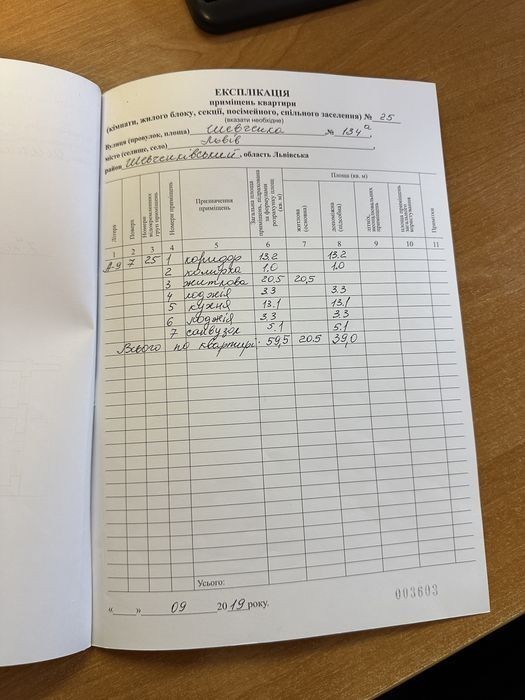 ЕКСПЛІКАЦІЯ
приміщень квартири
(кімнати, жилого блоку, секції, посімейного, спільного заселення) № 25
(вказати необхідне)
Вулиця (провулок, площа) Шевченка № 134а,
місто (селище, село) Львів,
район Шевченківський, область Львівська
Літера
Поверх
Номери відокремлених груп приміщень
Номери приміщень
Призначення приміщень
Загальна площа приміщень, підрахована за формулами розрахунку площ (кв. м)
Площа (кв. м)
житлова (основна)
допоміжна (підсобна)
літніх, неопалювальних приміщень
площа приміщень загального користування
Примітки
1 2 3 4 5 6 7 8 9 10 11
А-9 7 25 1 коридор 13,2 13,2
2 комірка 1,0 1,0
3 житлова 20,5 20,5
4 лоджія 3.3 3.3
5 кухня 13.1 13,1
6 лоджія 3,3 3.3
7 санвузол 5.1 5.1
Всього по квартирі: 59,5 20.5 39,0
Усього:
«____» 09 2019 року.
003603